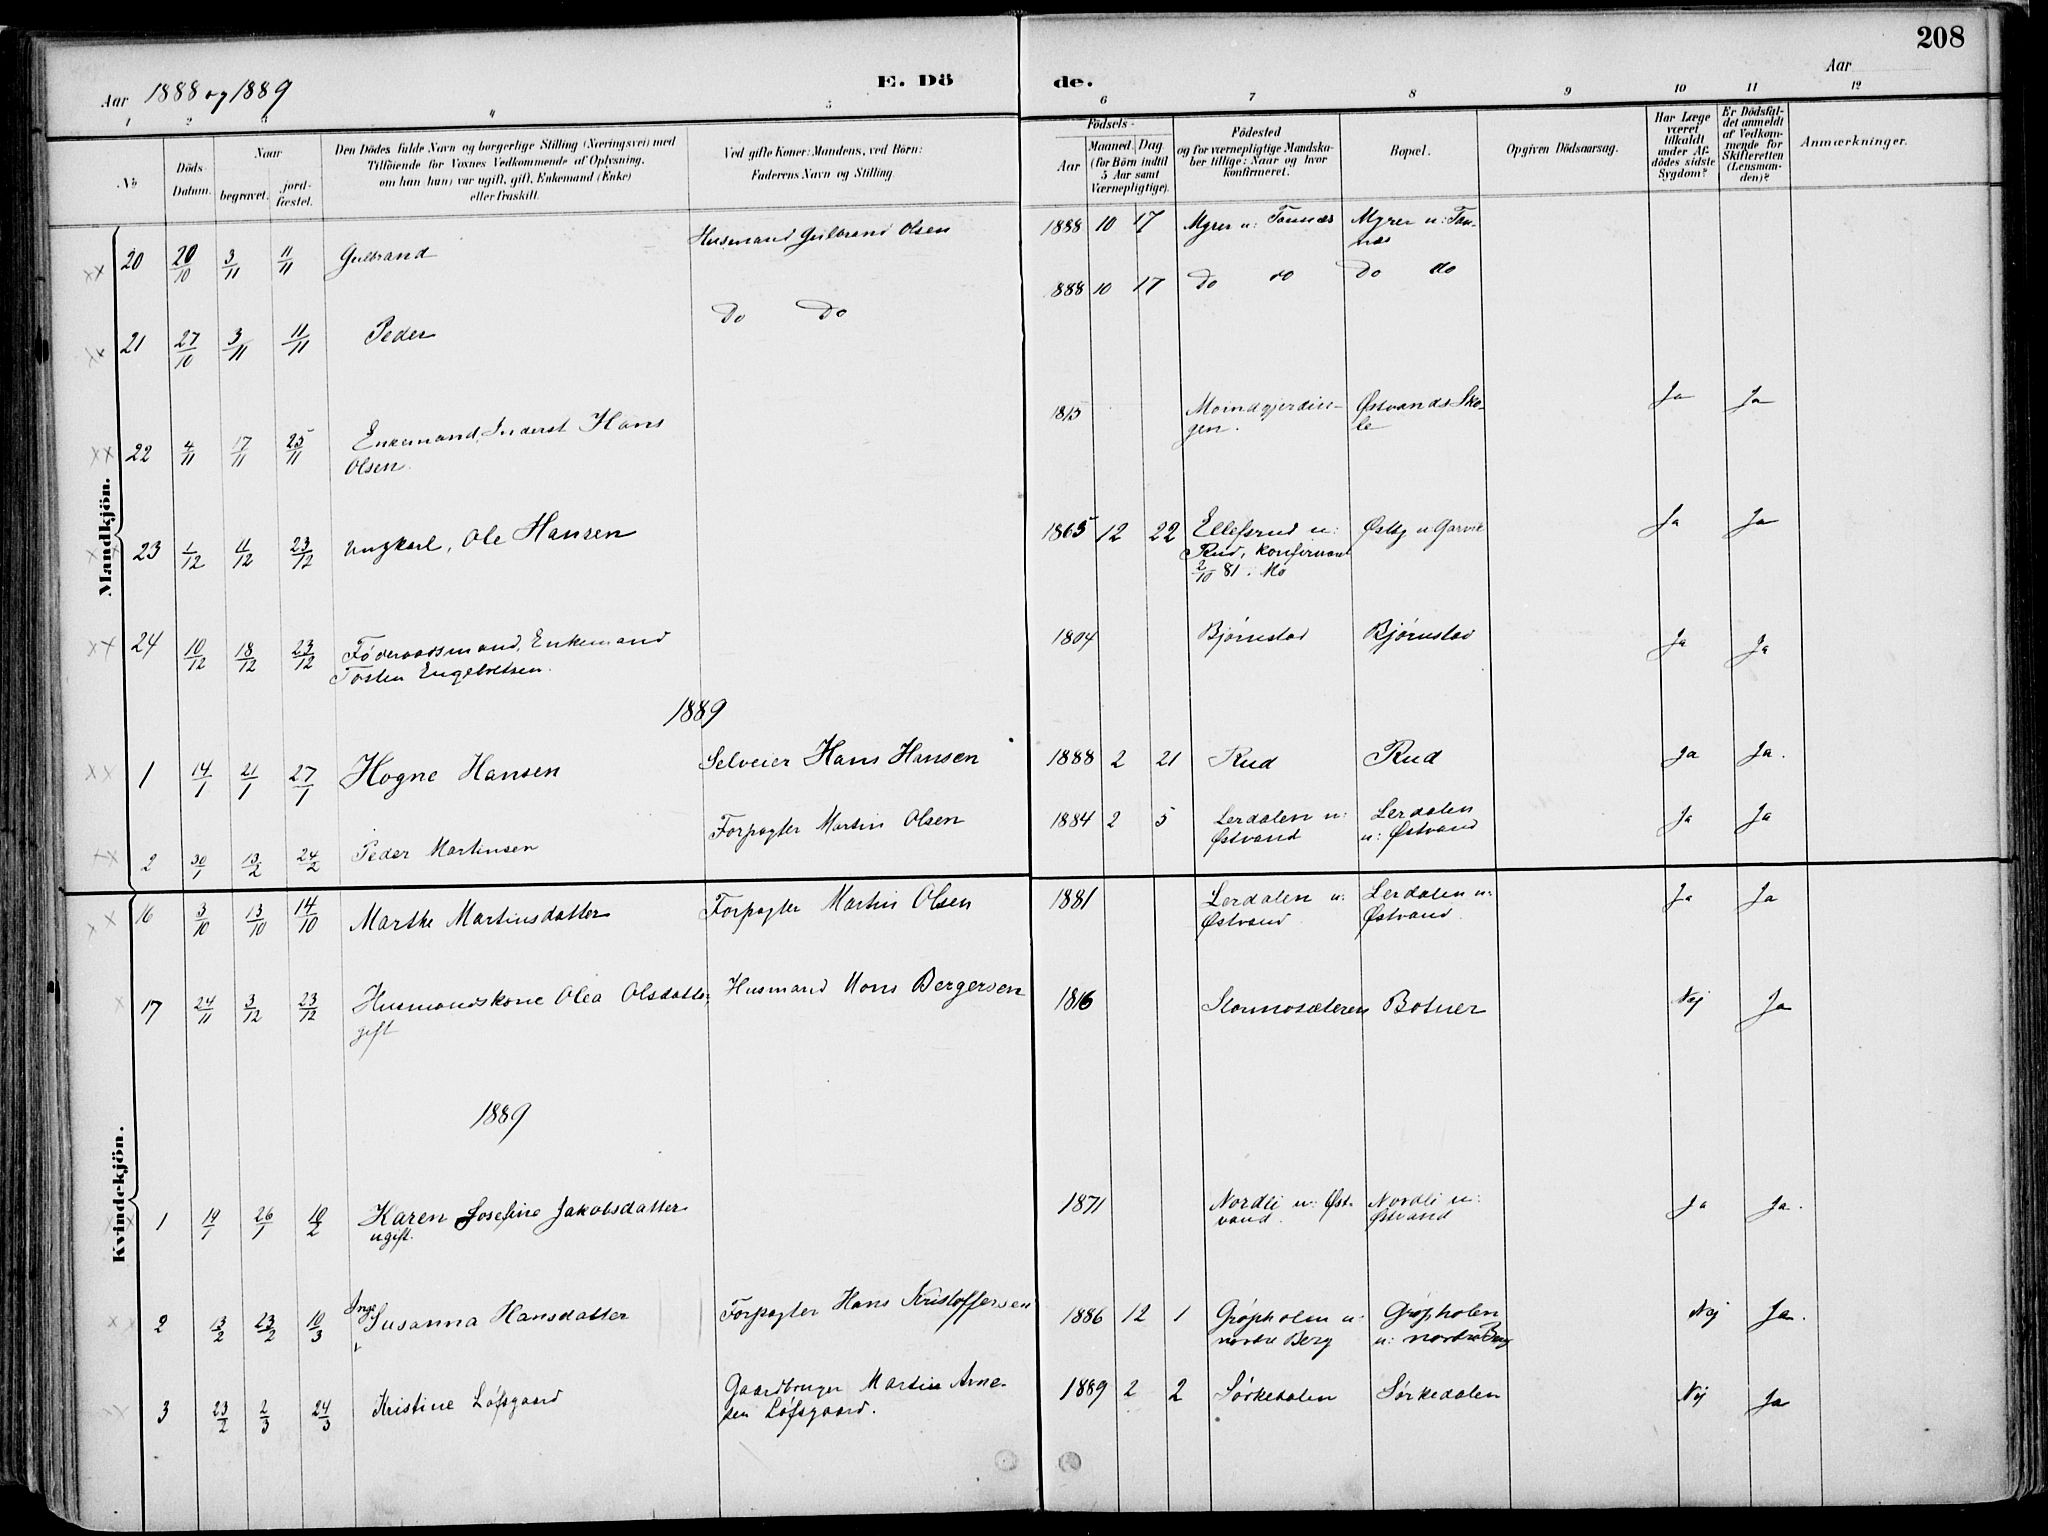 208
Aar 1888 og 1889
E. Dö de.
Aar
1 2 3 4 5 6 7 8 9 10 11 12
No
Döds-Datum.
Naar
begravet.
jord-fæstet.
Den Dödes fulde Navn og borgerlige Stilling (Næringsvei) med
Tilföiende for Voxnes Vedkommende af Oplysning,
om han (hun) var ugift, gift, Enkemand (Enke)
eller fraskilt.
Ved gifte Koner: Mandens, ved Börn:
Faderens Navn og Stilling.
Födsels-
Aar
Maaned. Dag.
(for Börn indtil
5 Aar samt
Værnepligtige).
Födested
og for værnepligtige Mandska-
ber tillige: Naar og hvor
konfirmeret.
Bopæl.
Opgiven Dödsaarsag.
Har Læge
været
tilkaldt
under Af-
dödes sidste
Sygdom?
Er Dödsfal-
det anmeldt
af Vedkom-
mende for
Skifteretten
(Lensman-
den)?
Anmærkninger.
Mandkjön.
20 20/10 3/11 11/11 Gulbrand Husmand Gulbrand Olsen 1888 10 17 Myrer u: Tannæs Myrer u: Tan-
næs
21 27/10 3/11 11/11 Peder Do Do 888 10 17 Do do Do do
22 4/11 17/11 25/11 Enkemand, Inderst Hans 1815 Moindgjerdin- Østvands Sko- Ja Ja
Olsen. gen. le
23 1/12 11/12 23/12 ungkarl, Ole Hansen 1865 12 22 Ellefsrud u: Østby u Garvik Ja Ja
Rud, konfirmeret
2/10 81 i Mo
24 10/12 18/12 23/12 Føderaadsmand, Enkemand 1804 Bjørnstad Bjørnstad Ja Ja
Tosten Engebretsen.
1889
1 14/1 21/1 27/1 Hogne Hansen Selveier Hans Hansen 1888 2 21 Rud Rud Ja Ja.
2 30/1 13/2 24/2 Peder Martinsen Forpagter Martin Olsen 1884 2 5 Lerdalen u: Lerdalen Ja Ja
Østvand u: Østvand
Kvindekjön.
16 3/10 13/10 14/10 Marthe Martinsdatter Forpagter Martin Olsen 1881 Lerdalen u: Lerdalen u: Ja Ja
Østvand. Østvand.
17 24/11 3/12 23/12 Husmandskone Olea Olsdatter, Husmand Mons Bergersen 1816 Stormosæteren Botner Nej Ja
gift
1889
1 19/1 26/1 10/2 Karen Josefine Jakobsdatter 1871 Nordli u: Øst- Nordli u: Ja Ja.
ugift. vand. Østvand
2 13/2 23/2 10/3 Inge Susanna Hansdatter Forpagter Hans Kristoffersen 1886 12 1 Grøpholen u: Grøpholen Nej Ja.
nordre Berg u: nordre Berg
3 23/2 2/3 24/3 Kristine Løfsgaard Gaardbruger Martin Arne- 1889 2 2 Sørkedalen Sørkedalen Nej Ja
sen Løfsgaard.